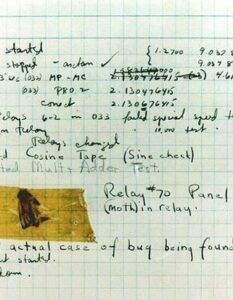 started
stopped - arctan ✓ { 1.2700 9.037 8
9.037 8
MP - MC 2.130476415
033) PRO 2 2.130476415
correct 2.130676415
Relays 6-2 in 033 failed special speed te
Relay 10,000 test.
Relays changed
Cosine Tape (Sine check)
ted Multi Adder Test.
Relay #70 Panel
(moth) in relay.
actual case of bug being foun
started.
down.